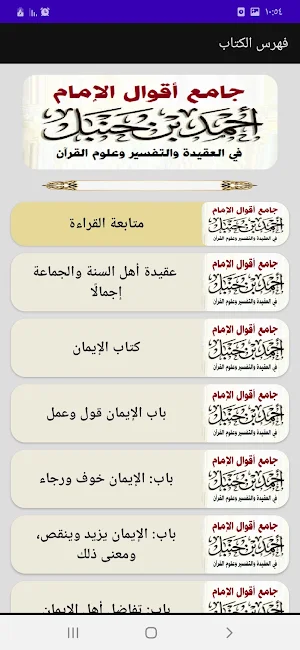 ١٠:٥٤
فهرس الكتاب
جامع أقوال الإمام
أحمد بن حنبل
في العقيدة والتفسير وعلوم القرآن
متابعة القراءة
جامع أقوال الإمام
أحمد بن حنبل
في العقيدة والتفسير وعلوم القرآن
عقيدة أهل السنة والجماعة
إجمالًا
جامع أقوال الإمام
أحمد بن حنبل
في العقيدة والتفسير وعلوم القرآن
كتاب الإيمان
جامع أقوال الإمام
أحمد بن حنبل
في العقيدة والتفسير وعلوم القرآن
باب الإيمان قول وعمل
جامع أقوال الإمام
أحمد بن حنبل
في العقيدة والتفسير وعلوم القرآن
باب: الإيمان خوف ورجاء
جامع أقوال الإمام
أحمد بن حنبل
في العقيدة والتفسير وعلوم القرآن
باب: الإيمان يزيد وينقص،
ومعنى ذلك
جامع أقوال الإمام
أحمد بن حنبل
في العقيدة والتفسير وعلوم القرآن
باب: تفاضل أهل الإيمان
جامع أقوال الإمام